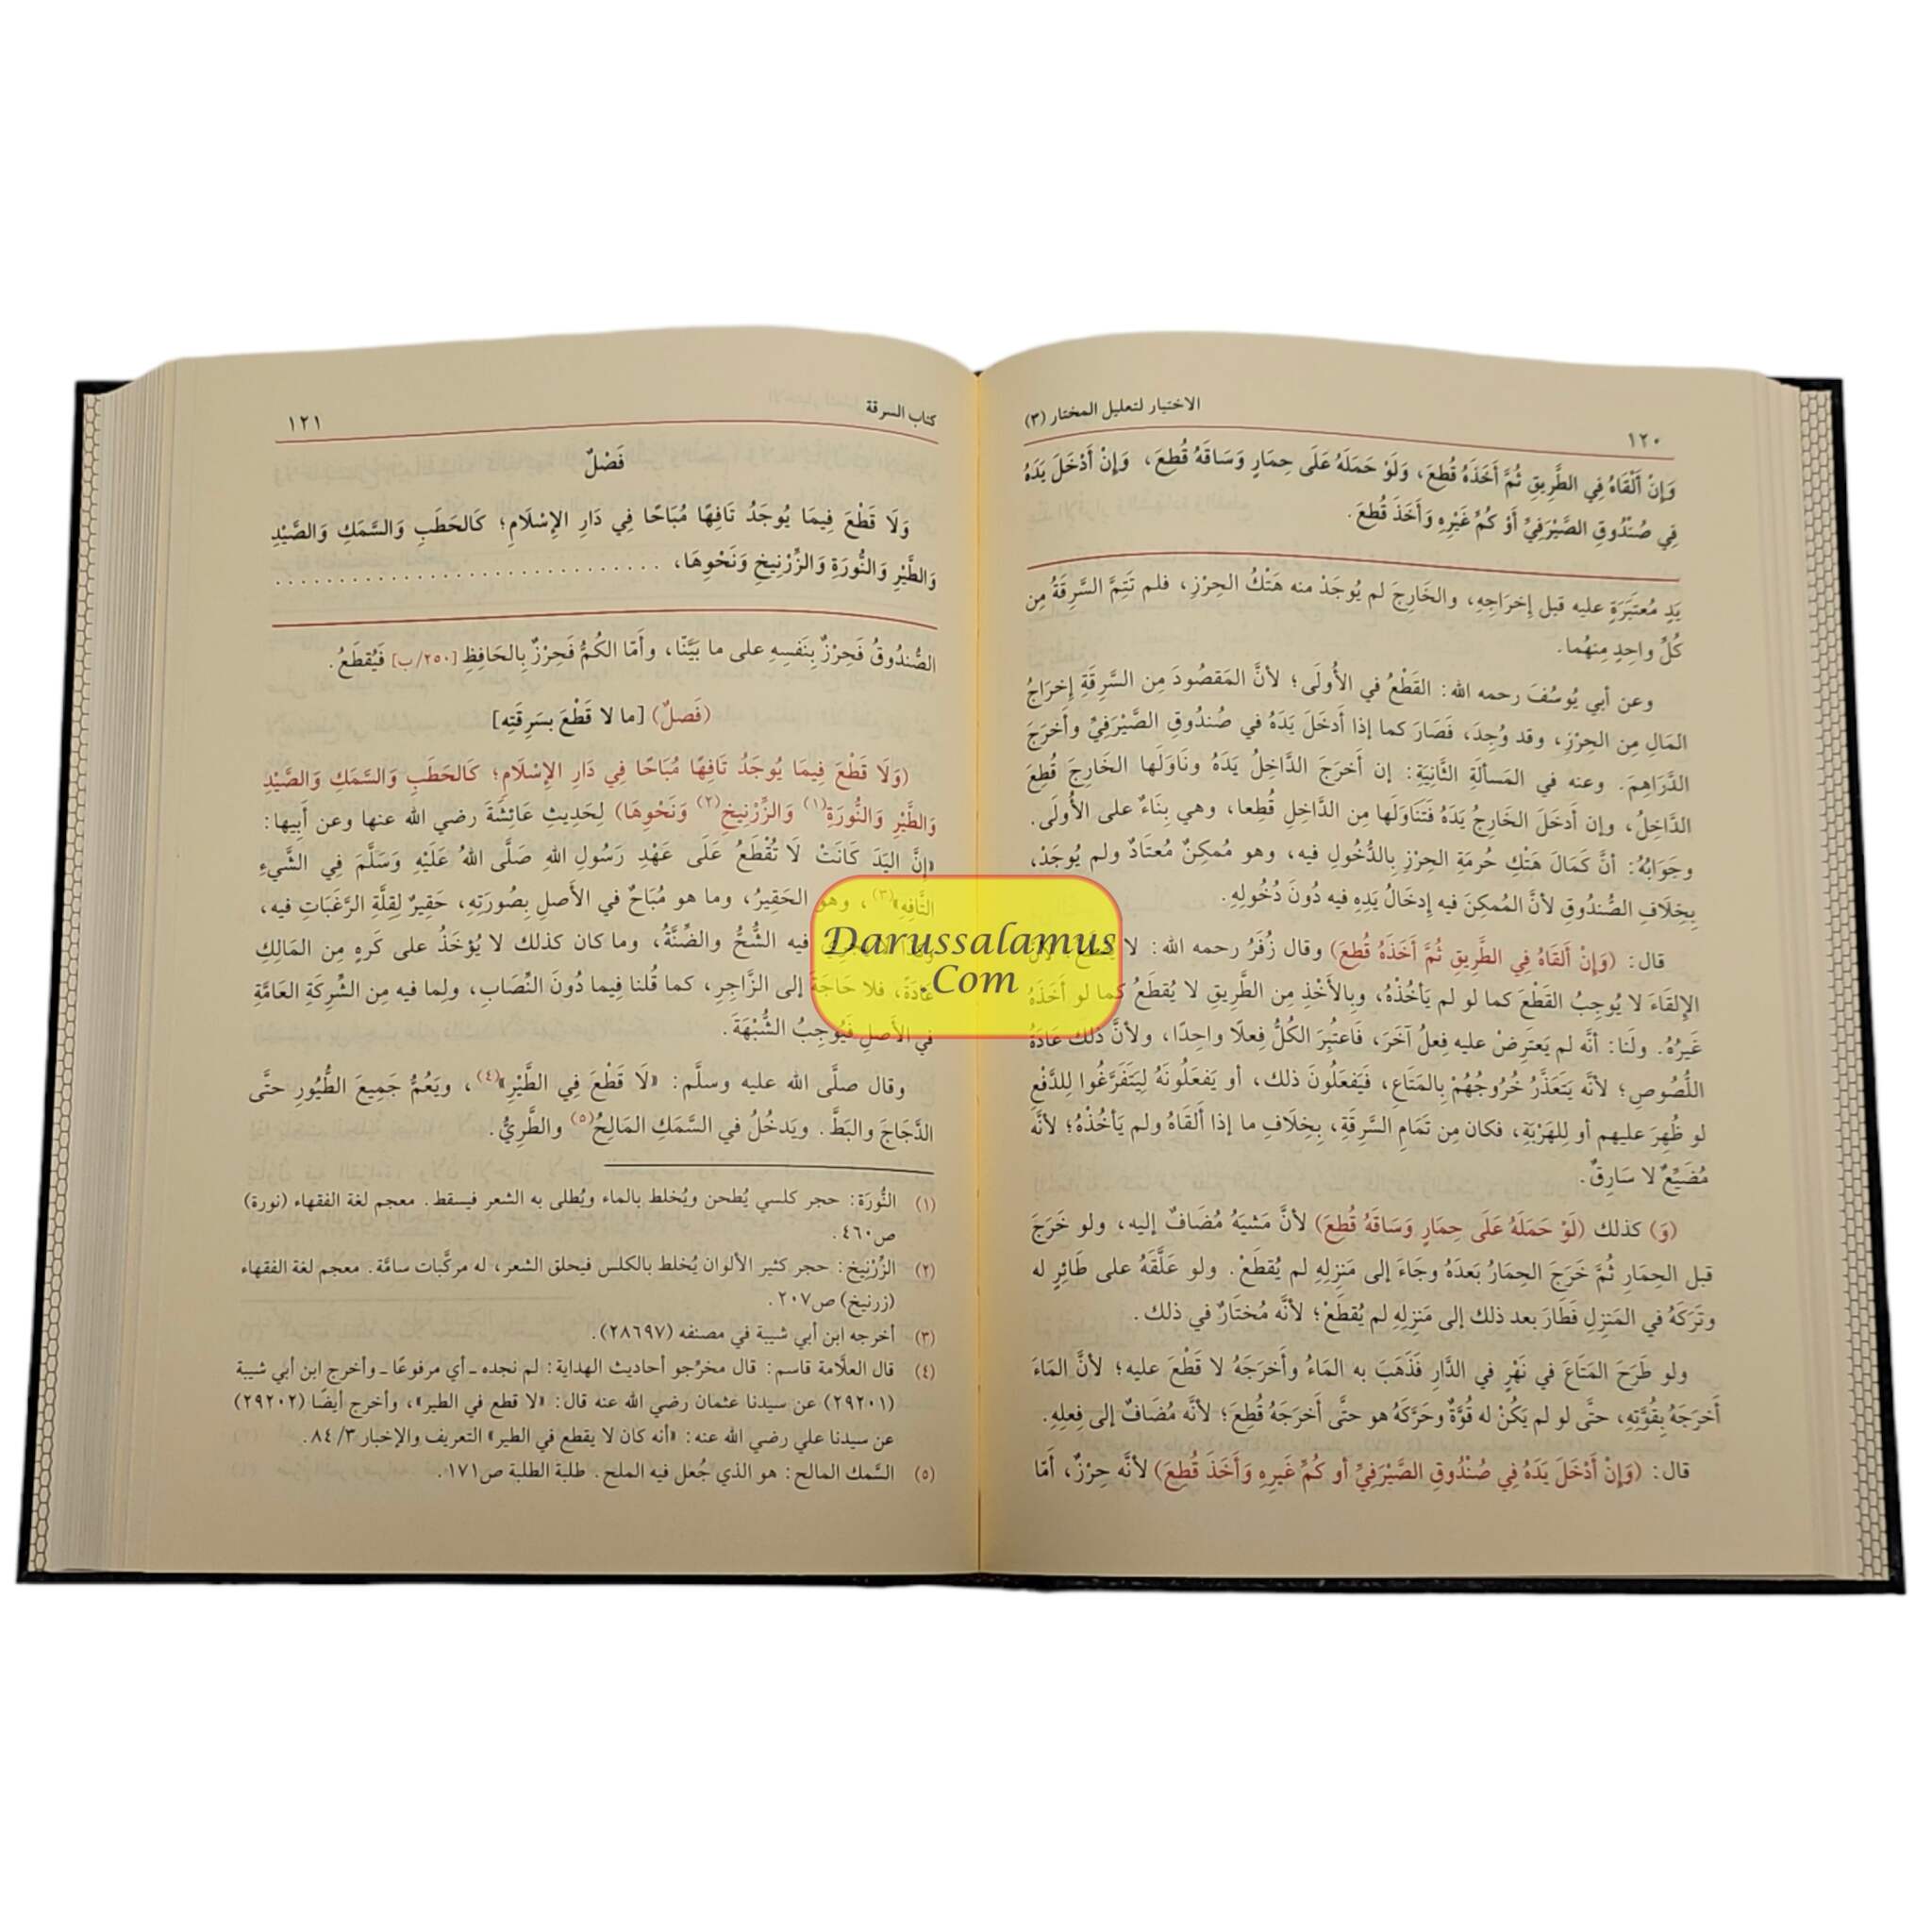 الاختيار لتعليل المختار (٣)
١٢٠
وَإِنْ أَلْقَاهُ فِي الطَّرِيقِ ثُمَّ أَخَذَهُ قُطِعَ، وَلَوْ حَمَلَهُ عَلَى حِمَارٍ وَسَاقَهُ قُطِعَ، وَإِنْ أَدْخَلَ يَدَهُ
فِي صُنْدُوقِ الصَّيْرَفِيِّ أَوْ كُمِّ غَيْرِهِ وَأَخَذَ قُطِعَ.
يَدٍ مُعتَبَرَةٍ عليه قبل إِخرَاجِهِ، والخَارِجَ لم يُوجَدْ منه هَتْكُ الحِرْزِ، فلم تَتِمَّ السَّرِقَةُ مِن
كُلِّ واحِدٍ مِنهُما.
وعن أبي يُوسُفَ رحمه الله: القَطْعُ في الأُولَى؛ لأنَّ المَقصُودَ مِن السَّرِقَةِ إِخرَاجُ
المَالِ مِن الحِرْزِ، وقد وُجِدَ، فَصَارَ كما إذا أَدخَلَ يَدَهُ في صُندُوقِ الصَّيْرَفِيِّ وأَخرَجَ
الدَّرَاهِمَ. وعنه في المَسألَةِ الثَّانِيَةِ: إن أَخرَجَ الدَّاخِلُ يَدَهُ ونَاوَلَها الخَارِجَ قُطِعَ
الدَّاخِلُ، وإن أَدخَلَ الخَارِجُ يَدَهُ فَتَنَاوَلَها مِن الدَّاخِلِ قُطِعا، وهي بِنَاءٌ على الأُولَى.
وجَوَابُهُ: أنَّ كَمَالَ هَتْكِ حُرمَةِ الحِرْزِ بِالدُّخُولِ فيه، وهو مُمكِنٌ مُعتَادٌ ولم يُوجَدْ،
بِخِلَافِ الصُّندُوقِ لأنَّ المُمكِنَ فيه إِدخَالُ يَدِهِ فيه دُونَ دُخُولِهِ.
قال: (وَإِنْ أَلقَاهُ فِي الطَّرِيقِ ثُمَّ أَخَذَهُ قُطِعَ) وقال زُفَرُ رحمه الله: لا يُقطَعُ؛ لأنَّ
الإِلقَاءَ لا يُوجِبُ القَطْعَ كما لو لم يَأخُذْهُ، وبِالأَخْذِ مِن الطَّرِيقِ لا يُقطَعُ كما لو أَخَذَهُ
غَيرُهُ. ولَنَا: أنَّه لم يَعتَرِضْ عليه فِعلُ آخَرَ، فَاعتُبِرَ الكُلُّ فِعلًا واحِدًا، ولأنَّ ذلك عَادَةُ
اللُّصُوصِ؛ لأنَّه يَتَعَذَّرُ خُرُوجُهُمْ بِالمَتَاعِ، فَيَفعَلُونَ ذلك، أو يَفعَلُونَهُ لِيَتَفَرَّغُوا لِلدَّفْعِ
لو ظُهِرَ عليهم أو لِلهَرْبَةِ، فكان مِن تَمَامِ السَّرِقَةِ، بِخِلَافِ ما إذا أَلقَاهُ ولم يَأخُذْهُ؛ لأنَّهُ
مُضَيِّعٌ لا سَارِقٌ.
(وَ) كذلك (لَوْ حَمَلَهُ عَلَى حِمَارٍ وَسَاقَهُ قُطِعَ) لأنَّ مَشيَهُ مُضَافٌ إليه، ولو خَرَجَ
قبل الحِمَارِ ثُمَّ خَرَجَ الحِمَارُ بَعدَهُ وجَاءَ إلى مَنزِلِهِ لم يُقطَعْ. ولو عَلَّقَهُ على طَائِرٍ له
وتَرَكَهُ في المَنزِلِ فَطَارَ بعد ذلك إلى مَنزِلِهِ لم يُقطَعْ؛ لأنَّه مُختَارٌ في ذلك.
ولو طَرَحَ المَتَاعَ في نَهْرٍ في الدَّارِ فَذَهَبَ به المَاءُ وأَخرَجَهُ لا قَطْعَ عليه؛ لأنَّ المَاءَ
أَخرَجَهُ بِقُوَّتِهِ، حتَّى لو لم يَكُنْ له قُوَّةٌ وحَرَّكَهُ هو حتَّى أَخرَجَهُ قُطِعَ؛ لأنَّه مُضَافٌ إلى فِعلِهِ.
قال: (وَإِنْ أَدْخَلَ يَدَهُ فِي صُنْدُوقِ الصَّيْرَفِيِّ أو كُمِّ غَيرِهِ وَأَخَذَ قُطِعَ) لأنَّه حِرْزٌ، أمَّا
كتاب السرقة
١٢١
فَصْلٌ
وَلَا قَطْعَ فِيمَا يُوجَدُ تَافِهًا مُبَاحًا فِي دَارِ الإِسْلَامِ؛ كَالحَطَبِ وَالسَّمَكِ وَالصَّيْدِ
وَالطَّيْرِ وَالنُّورَةِ وَالزِّرْنِيخِ وَنَحْوِهَا، ..............................
الصُّندُوقُ فَحِرْزٌ بِنَفسِهِ على ما بَيَّنَّا، وأمَّا الكُمُّ فَحِرْزٌ بِالحَافِظِ [٢٥٠/ب] فَيُقطَعُ.
(فَصلٌ) [ما لا قَطْعَ بسَرِقَتِه]
(وَلَا قَطْعَ فِيمَا يُوجَدُ تَافِهًا مُبَاحًا فِي دَارِ الإِسْلَامِ؛ كَالحَطَبِ وَالسَّمَكِ وَالصَّيْدِ
وَالطَّيْرِ وَالنُّورَةِ(١) وَالزِّرْنِيخِ(٢) وَنَحْوِهَا) لِحَدِيثِ عَائِشَةَ رضي الله عنها وعن أَبِيها:
«إِنَّ اليَدَ كَانَتْ لَا تُقْطَعُ عَلَى عَهْدِ رَسُولِ اللهِ صَلَّى اللهُ عَلَيْهِ وَسَلَّمَ فِي الشَّيءِ
التَّافِهِ»(٣)، وهو الحَقِيرُ، وما هو مُبَاحٌ في الأَصلِ بِصُورَتِهِ، حَقِيرٌ لِقِلَّةِ الرَّغَبَاتِ فيه،
فيه الشُّحُّ والضِّنَّةُ، وما كان كذلك لا يُؤخَذُ على كَرهٍ مِن المَالِكِ
عَادَةً، فلا حَاجَةَ إلى الزَّاجِرِ، كما قُلنا فِيما دُونَ النِّصَابِ، ولِما فيه مِن الشِّرِكَةِ العَامَّةِ
في الأَصلِ فَيُوجِبُ الشُّبْهَةَ.
وقال صلَّى الله عليه وسلَّم: «لَا قَطْعَ فِي الطَّيْرِ»(٤)، ويَعُمُّ جَمِيعَ الطُّيُورِ حتَّى
الدَّجَاجَ والبَطَّ. ويَدخُلُ في السَّمَكِ المَالِحُ(٥) والطَّرِيُّ.
(١) النُّورَة: حجر كلسي يُطحن ويُخلط بالماء ويُطلى به الشعر فيسقط. معجم لغة الفقهاء (نورة)
ص٤٦٠.
(٢) الزَّرْنِيخ: حجر كثير الألوان يُخلط بالكلس فيحلق الشعر، له مركَّبات سامَّة. معجم لغة الفقهاء
(زرنيخ) ص٢٠٧.
(٣) أخرجه ابن أبي شيبة في مصنفه (٢٨٦٩٧).
(٤) قال العلَّامة قاسم: قال مخرِّجو أحاديث الهداية: لم نجده ـ أي مرفوعًا ـ وأخرج ابن أبي شيبة
(٢٩٢٠١) عن سيدنا عثمان رضي الله عنه قال: «لا قطع في الطير»، وأخرج أيضًا (٢٩٢٠٢)
عن سيدنا علي رضي الله عنه: «أنه كان لا يقطع في الطير» التعريف والإخبار ٨٤/٣.
(٥) السَّمك المالح: هو الذي جُعل فيه الملح. طلبة الطلبة ص١٧١.
Darussalamus
.Com